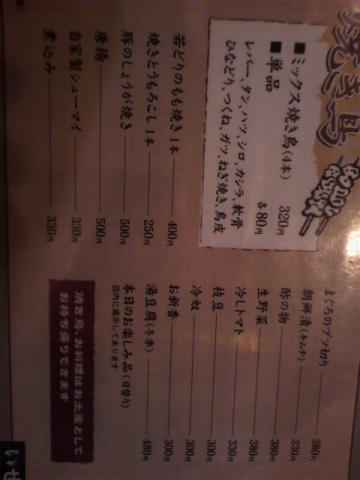 焼き鳥
■ミックス焼き鳥(4本) 320円
■単品 各80円
レバー、タン、ハツ、シロ、カシラ、軟骨
ひなどり、つくね、ガツ、ねぎ焼き、鳥皮
若どりのもも焼き1本 400円
焼きとうもろこし1本 250円
豚のしょうが焼き 500円
唐揚 500円
自家製シューマイ 330円
煮込み 330円
まぐろのブツ切り 380円
朝鮮漬(キムチ) 330円
酢の物 380円
生野菜 380円
冷しトマト 330円
枝豆 300円
冷奴 300円
お新香 300円
湯豆腐(冬季) 480円
本日のお楽しみ品(日替り)
店内に掲示してあります
焼き鳥、お料理はお土産として
お持ち帰りできます